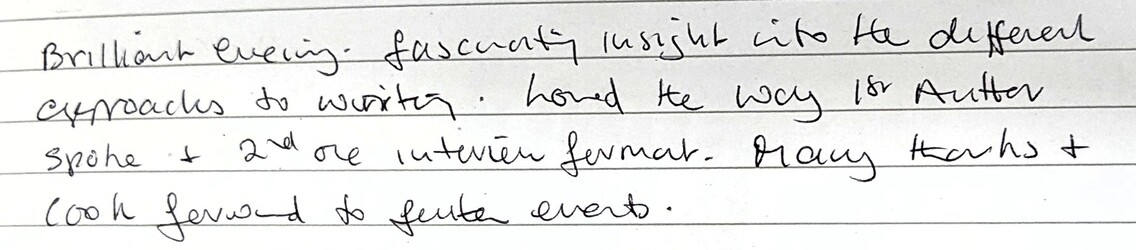 Brilliant evening. fascinating insight into the different
approaches to writing. Loved the way 1st Author
spoke + 2nd one interview format. Many thanks +
look forward to further events.